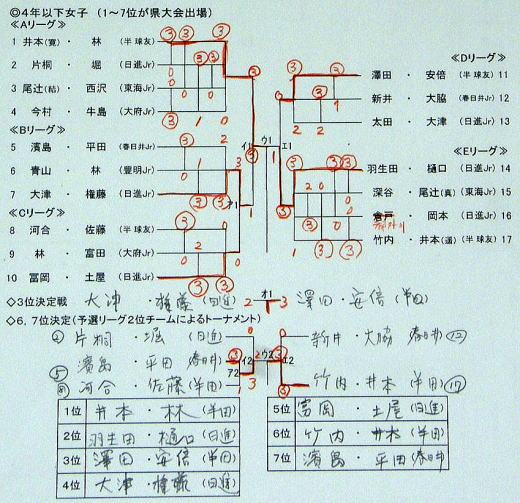 ◎4年以下女子 (1〜7位が県大会出場)
≪Aリーグ≫
1 井本(寛) ・ 林 (半球友)
2 片桐 ・ 堀 (日進Jr)
3 尾辻(結) ・ 西沢 (東海Jr)
4 今村 ・ 牛島 (大府Jr)
≪Bリーグ≫
5 濱島 ・ 平田 (春日井Jr)
6 青山 ・ 林 (豊明Jr)
7 大津 ・ 権藤 (日進Jr)
≪Cリーグ≫
8 河合 ・ 佐藤 (半球友)
9 林 ・ 富田 (大府Jr)
10 冨岡 ・ 土屋 (日進Jr)
≪Dリーグ≫
澤田 ・ 安倍 (半球友) 11
新井 ・ 大脇 (春日井Jr) 12
太田 ・ 大津 (日進Jr) 13
≪Eリーグ≫
羽生田 ・ 樋口 (日進Jr) 14
深谷 ・ 尾辻(真) (東海Jr) 15
倉戸 ・ 岡本 (日進Jr) 16
竹内 ・ 井本(遥) (半球友) 17
イ1 ウ1 エ1
ア1
◇3位決定戦 大津 ・ 権藤 (日進) 2 オ1 3 澤田 ・ 安倍 (半田)
◇6,7位決定(予選リーグ2位チームによるトーナメント)
② 片桐 ・ 堀 (日進) 0 0 新井 ・ 大脇 春日井 ⑫
⑤ 濱島 ・ 平田 春日井 ③ イ2 2 ウ2 ③ エ2
⑧ 河合 ・ 佐藤 (半田) ア2 1 3 ③ 竹内 ・ 井本 (半田) ⑰
1位 井本 ・ 林 (半田)
2位 羽生田 ・ 樋口 (日進)
3位 澤田 ・ 安倍 (半田)
4位 大津 ・ 権藤 (日進)
5位 富岡 ・ 土屋 (日進)
6位 竹内 ・ 井本 (半田)
7位 濱島 ・ 平田 春日井